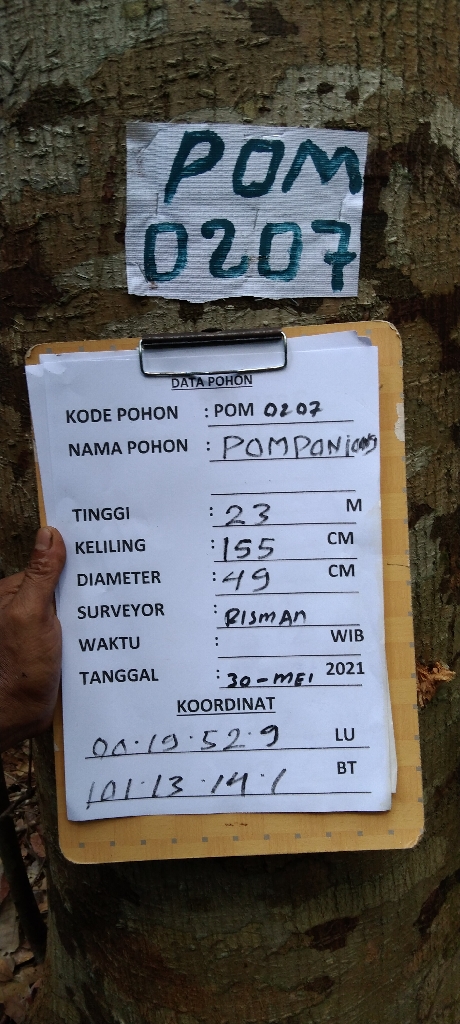 POM
0207
DATA POHON
KODE POHON : POM 0207
NAMA POHON : POMPONJANG
TINGGI : 23 M
KELILING : 155 CM
DIAMETER : 49 CM
SURVEYOR : RISMAN
WAKTU : WIB
TANGGAL : 30-MEI 2021
KOORDINAT
00.19.52.9 LU
101.13.14.1 BT